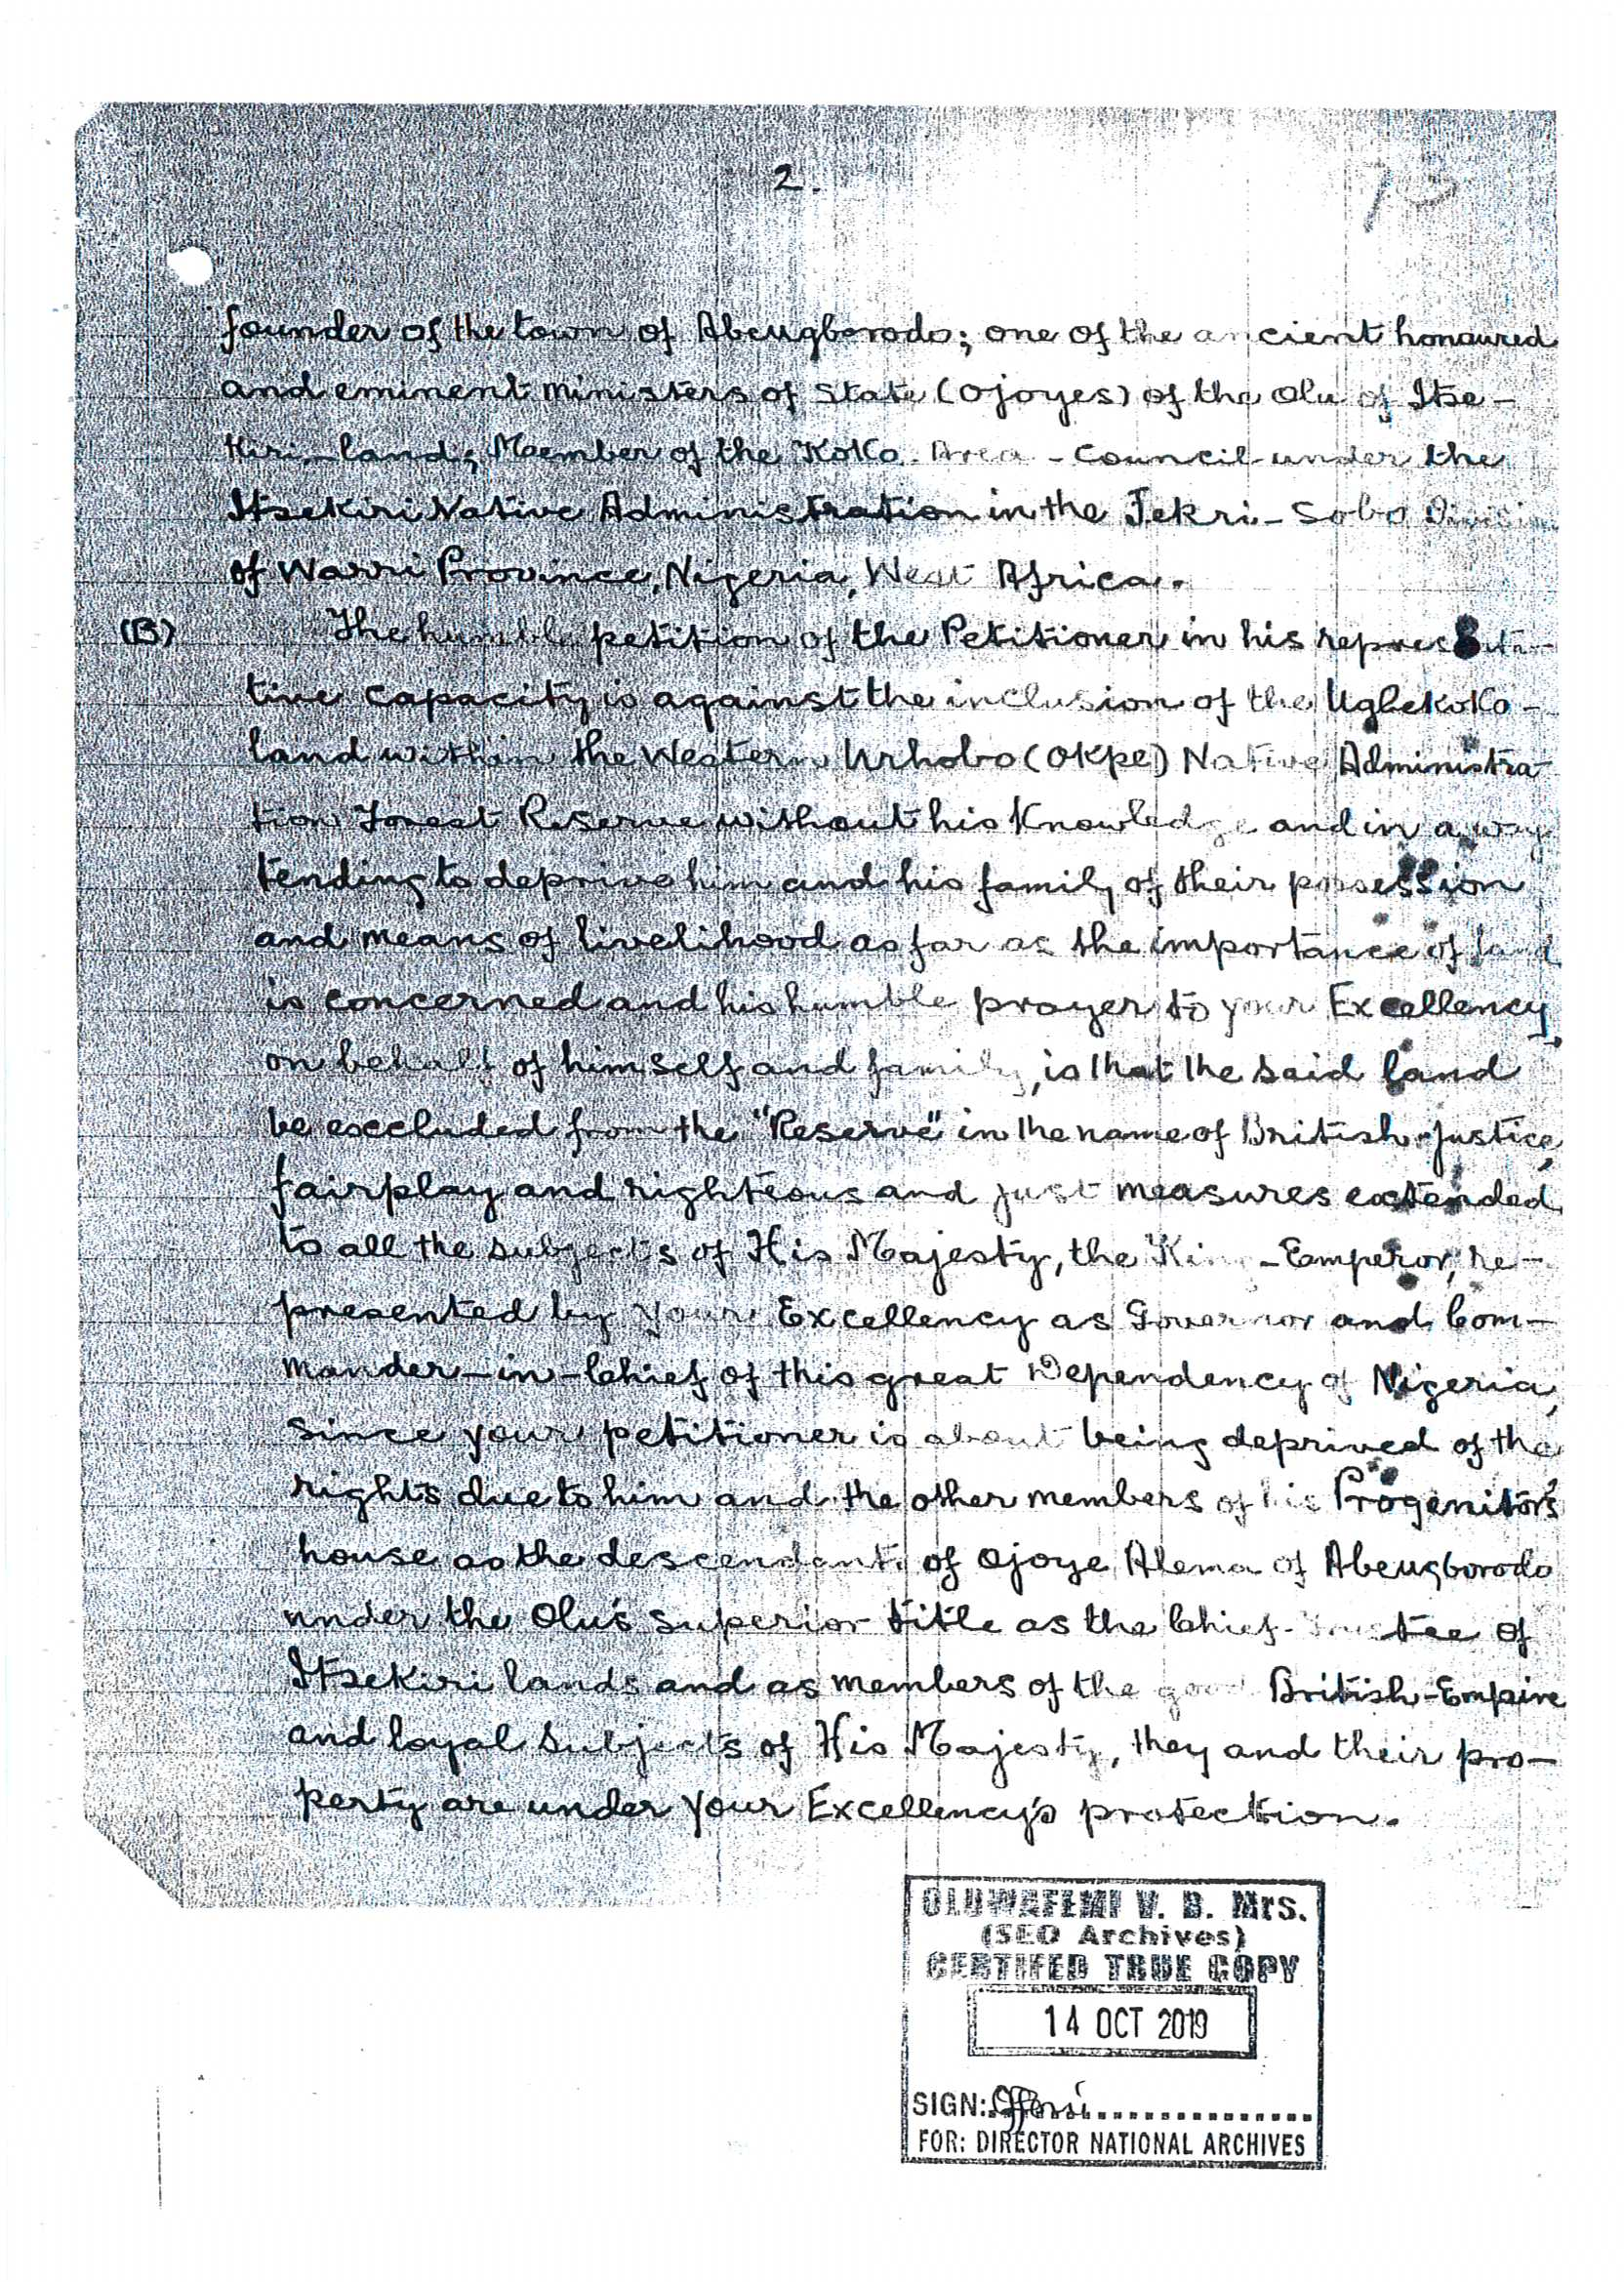 2.
founder of the town of Abeugborodo; one of the ancient honoured
and eminent ministers of State (Ojoyes) of the Olu of Itse-
Kiri-land; Member of the KoKo Area-Council under the
Itsekiri Native Administration in the Jekri-Sobo Division
of Warri Province, Nigeria, West Africa.
(B) The humble petition of the Petitioner in his representa-
tive capacity is against the inclusion of the UgbekoKo-
land within the Western Urhobo (Okpe) Native Administra-
tion Forest Reserve without his Knowledge and in a way
tending to deprive him and his family of their possession
and means of livelihood as far as the importance of land
is concerned and his humble prayer to your Excellency,
on behalf of himself and family, is that the said land
be excluded from the "Reserve" in the name of British-Justice,
fairplay and righteous and just measures extended
to all the subjects of His Majesty, the King-Emperor, re-
presented by Your Excellency as Governor and Com-
mander-in-Chief of this great Dependency of Nigeria,
since your petitioner is about being deprived of the
rights due to him and the other members of his Progenitor's
house as the descendants of Ojoye Alema of Abeugborodo
under the Olu's superior title as the Chief-Trustee of
Itsekiri lands and as members of the good British-Empire
and loyal subjects of His Majesty, they and their pro-
perty are under Your Excellency's protection.
OLUWAFEMI V. B. Mrs.
(SEO Archives)
CERTIFED TRUE COPY
14 OCT 2019
SIGN:
FOR: DIRECTOR NATIONAL ARCHIVES